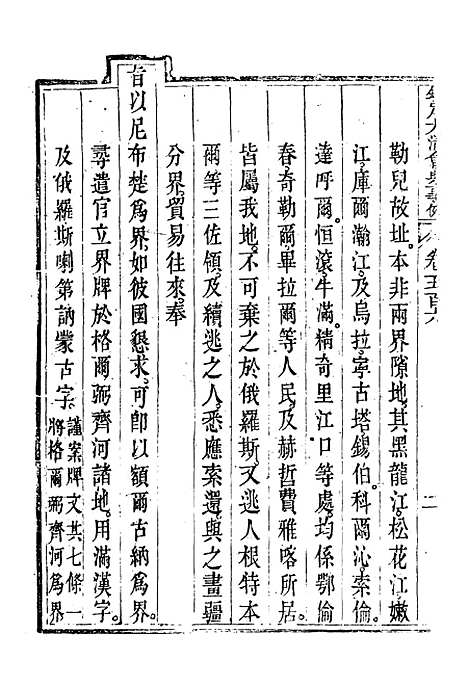 欽定大清會典事例 卷五百六 二
勒兒故址本非兩界隙地其黑龍江松花江嫩
江庫爾瀚江及烏拉寧古塔錫伯科爾沁索倫
達呼爾恒滾牛滿精奇里江口等處均係鄂倫
春奇勒爾畢拉爾等人民及赫哲費雅喀所居
皆屬我地不可棄之於俄羅斯又逃人根特木
爾等三佐領及續逃之人悉應索還與之畫疆
分界貿易往來奉
旨以尼布楚爲界如彼國懇求可卽以額爾古納爲界
尋遣官立界牌於格爾弼齊河諸地用滿漢字
及俄羅斯喇第訥蒙古字謹案牌文共七條一
將格爾弼齊河爲界